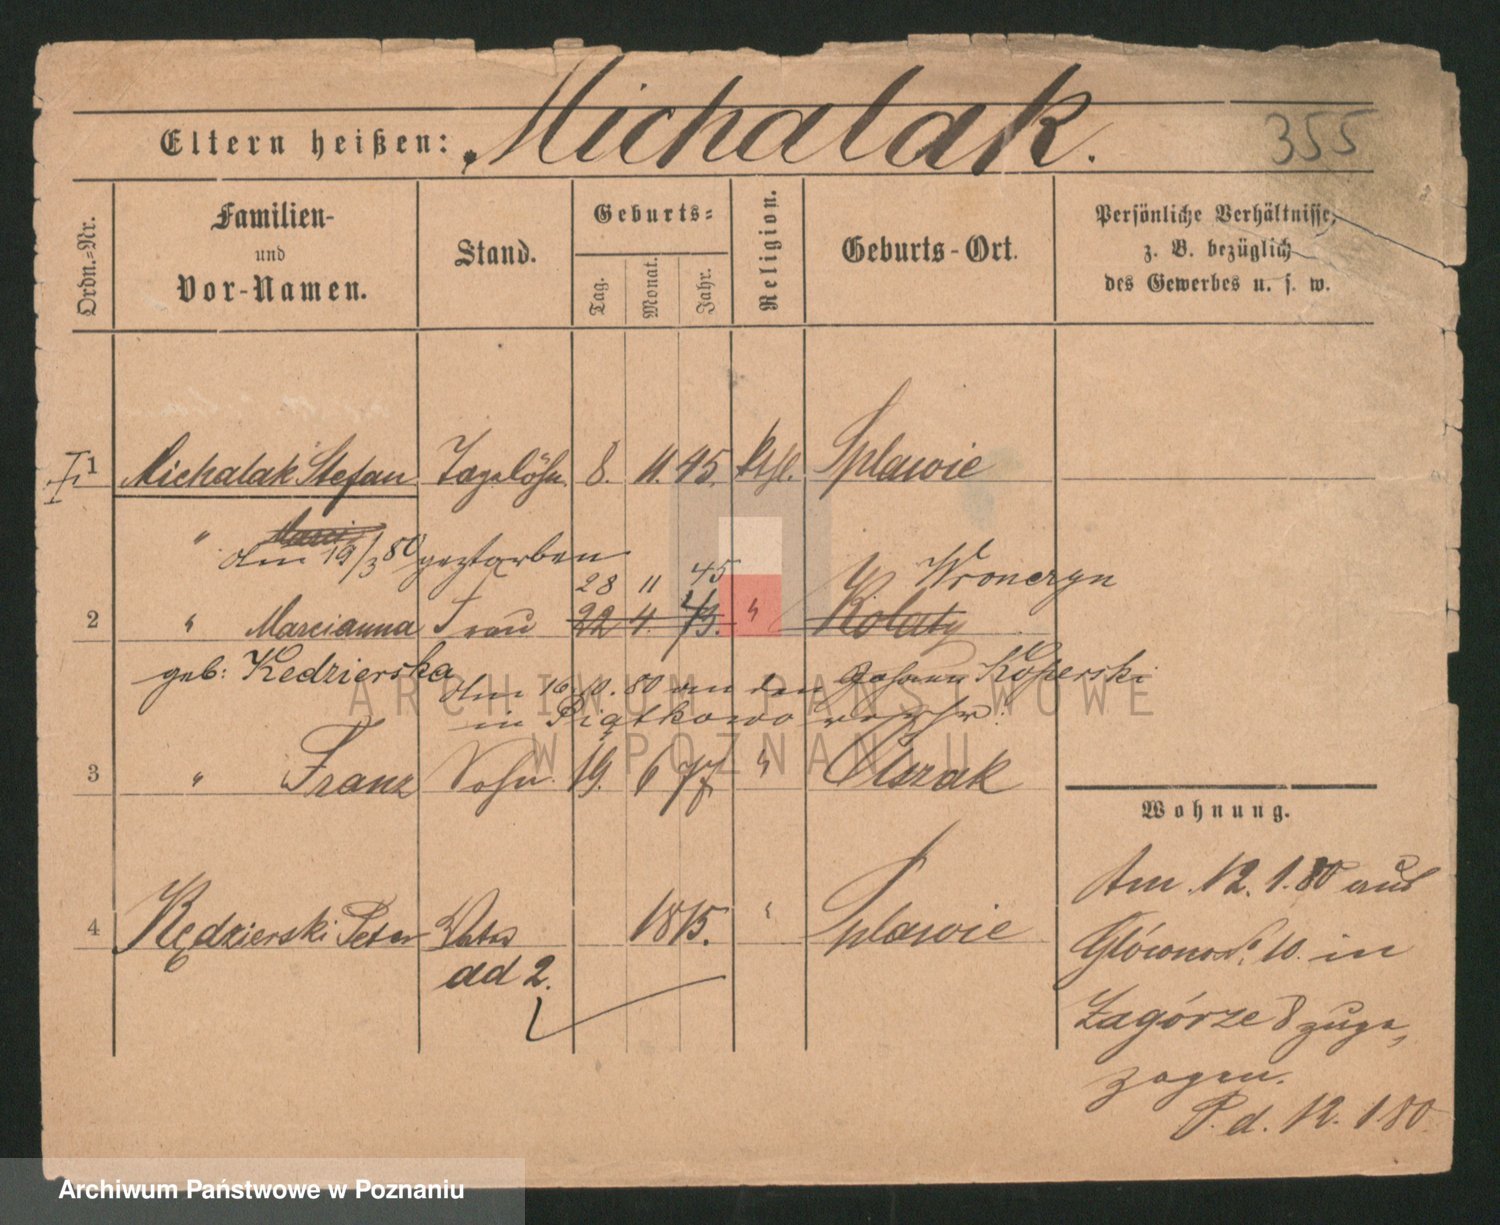 Eltern heißen: Michalak.
355
Ordn.-Nr.
Familien-
und
Vor-Namen.
Stand.
Geburts-
Tag.
Monat.
Jahr.
Religion.
Geburts-Ort.
Persönliche Verhältnisse,
z. B. bezüglich
des Gewerbes u. s. w.
1 Michalak Stefan Tagelöhn. 8. 11. 45. kthl. Splawie
" Marci
Am 19/3 80 gestorben
28 11 45 Wronczyn
2 " Marcianna Frau 22 4. 43. " Kolaty
geb: Kedzierska
Am 16.10.80 an den Johann Koperski
in Piątkowo verehr.
3 " Franz Sohn. 19. 6 77 " Olszak
4 Kędzierski Peter Vater 1815. " Splawie
ad 2.
Wohnung.
Am 12.1.80 aus
Glówno No. 10. in
Zagórze 8 zuge-
zogen.
P. d. 12. 1 80
ARCHIWUM PAŃSTWOWE
W POZNANIU
Archiwum Państwowe w Poznaniu